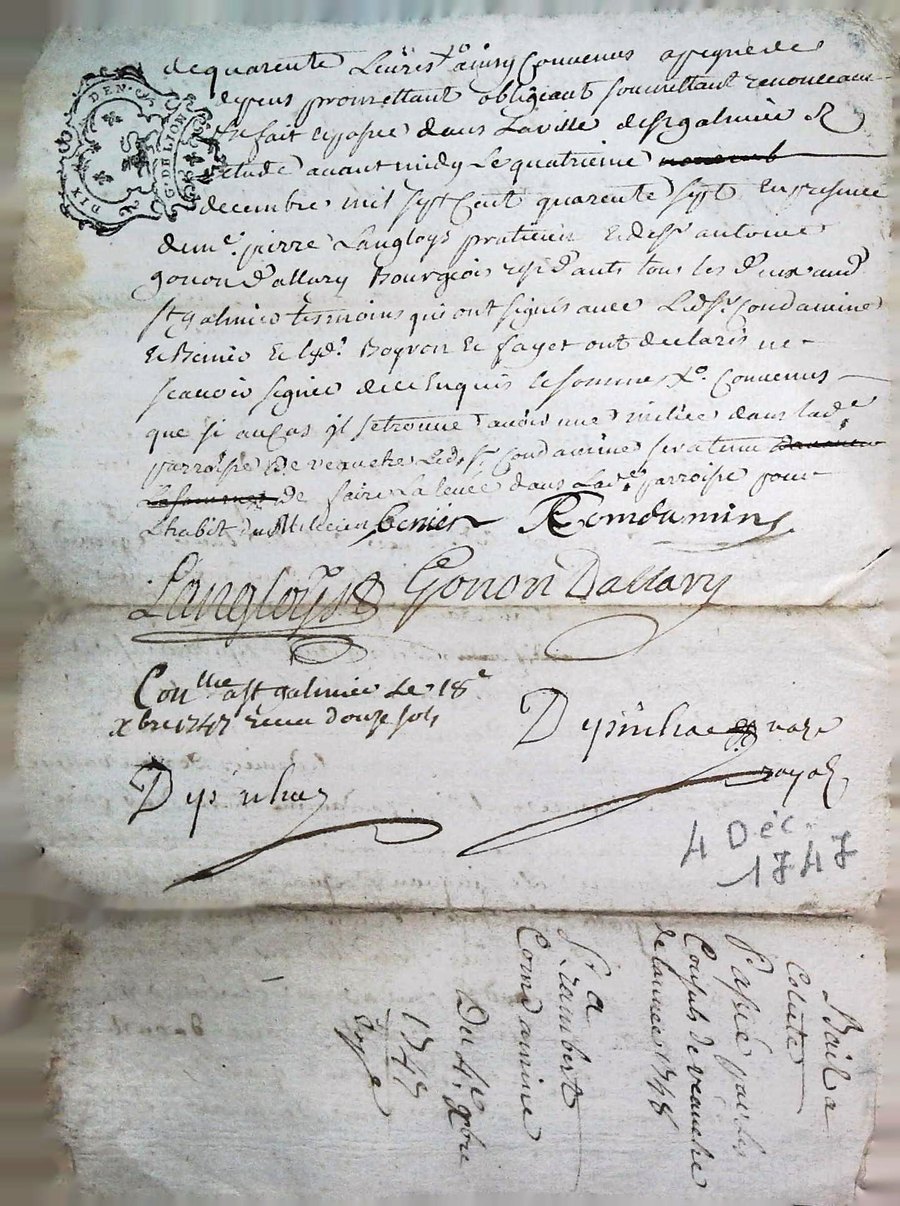 de quarente Livres &c. ainsy Convenus a peyne de
depens promettant obligeant soumettant renonceant
&c. fait et passé dans La ville de St galmier &
Etude avant midy Le quatrieme novemb
decembre mil sept Cent quarente sept En presence
de me. pierre Langloys praticien et de sr. antoine
gonon D'allary Bourgeois residants tous les deux aud.
St galmier tesmoins qui ont signés avec Led. sr. Condamine
et Benier et lesd. Boyron et fayet ont declarés ne
scavoir signer de ce Enquis et sommés &c. Convenus
que si au Cas il se trouve avoir une milice dans lad.e
parroisse de veauche Led. sr. Condamine sera tenu
de faire La levée dans Lad.e parroisse pour
L'habit du Millicien Benier Condamine
Langloys Gonon Dallary
Con.lle a St galmier Le 18e
xbre 1747 Receu douze sols
Dyssuchas
4 Déc.
1747
Bail a
Colecte
Passé par les
Consuls de veauche
de l'année 1748
a
St. rambert
Condamine
Du 4e. xbre
1747